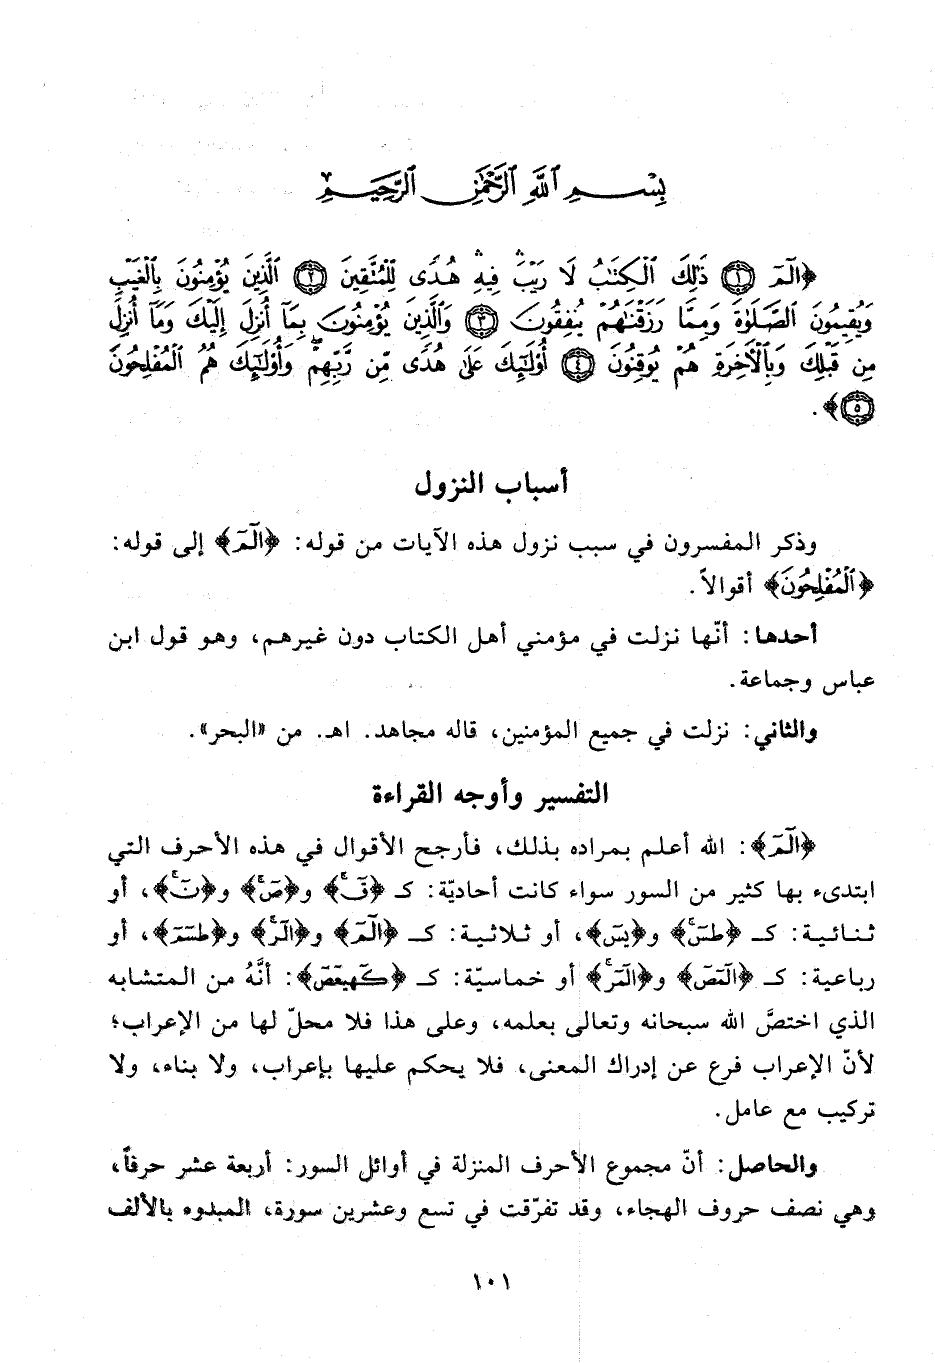 بِسْمِ ٱللَّهِ ٱلرَّحْمَٰنِ ٱلرَّحِيمِ
﴿الٓمٓ ۝١ ذَٰلِكَ ٱلْكِتَٰبُ لَا رَيْبَ ۛ فِيهِ ۛ هُدًى لِّلْمُتَّقِينَ ۝٢ ٱلَّذِينَ يُؤْمِنُونَ بِٱلْغَيْبِ
وَيُقِيمُونَ ٱلصَّلَوٰةَ وَمِمَّا رَزَقْنَٰهُمْ يُنفِقُونَ ۝٣ وَٱلَّذِينَ يُؤْمِنُونَ بِمَآ أُنزِلَ إِلَيْكَ وَمَآ أُنزِلَ
مِن قَبْلِكَ وَبِٱلْأَخِرَةِ هُمْ يُوقِنُونَ ۝٤ أُوْلَٰٓئِكَ عَلَىٰ هُدًى مِّن رَّبِّهِمْ ۖ وَأُوْلَٰٓئِكَ هُمُ ٱلْمُفْلِحُونَ
۝٥﴾.
أسباب النزول
وذكر المفسرون في سبب نزول هذه الآيات من قوله: ﴿الٓمٓ﴾ إلى قوله:
﴿ٱلْمُفْلِحُونَ﴾ أقوالاً.
أحدها: أنّها نزلت في مؤمني أهل الكتاب دون غيرهم، وهو قول ابن
عباس وجماعة.
والثاني: نزلت في جميع المؤمنين، قاله مجاهد. اهـ. من «البحر».
التفسير وأوجه القراءة
﴿الٓمٓ﴾: الله أعلم بمراده بذلك، فأرجح الأقوال في هذه الأحرف التي
ابتدىء بها كثير من السور سواء كانت أحاديّة: كـ ﴿قٓ ۚ﴾ و﴿صٓ ۚ﴾ و﴿نٓ ۚ﴾، أو
ثنائية: كـ ﴿طسٓ ۚ﴾ و﴿يسٓ﴾، أو ثلاثية: كـ ﴿الٓمٓ﴾ و﴿الٓر ۚ﴾ و﴿طسٓمٓ﴾، أو
رباعية: كـ ﴿الٓمٓصٓ﴾ و﴿الٓمٓر ۚ﴾ أو خماسيّة: كـ ﴿كٓهيعٓصٓ﴾: أنَّهُ من المتشابه
الذي اختصَّ الله سبحانه وتعالى بعلمه، وعلى هذا فلا محلّ لها من الإعراب؛
لأنّ الإعراب فرع عن إدراك المعنى، فلا يحكم عليها بإعراب، ولا بناء، ولا
تركيب مع عامل.
والحاصل: أنّ مجموع الأحرف المنزلة في أوائل السور: أربعة عشر حرفاً،
وهي نصف حروف الهجاء، وقد تفرّقت في تسع وعشرين سورة، المبدوء بالألف
١٠١